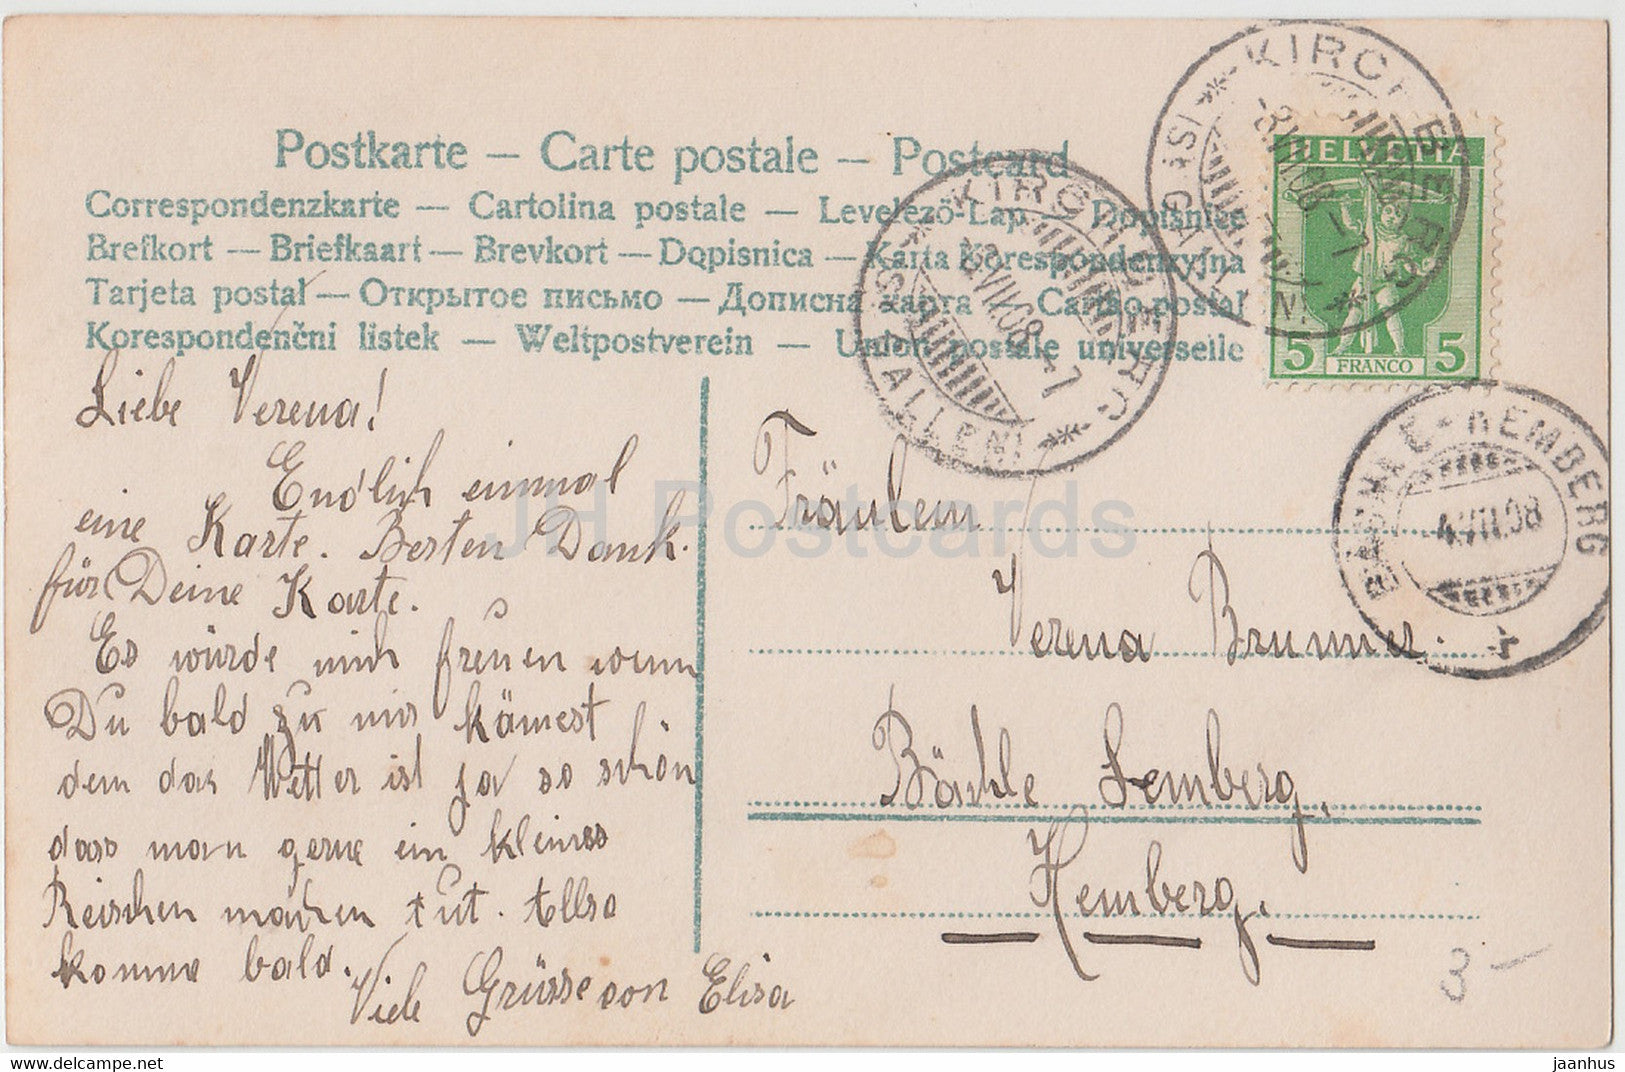 Postkarte – Carte postale – Postcard
Correspondenzkarte — Cartolina postale — Levelező-Lap — Dopisnice
Brefkort — Briefkaart — Brevkort — Dopisnica — Karta Korespondencyjna
Tarjeta postal — Открытое письмо — Дописна карта — Cartão postal
Korespondenční listek — Weltpostverein — Union postale universelle
KIRCHBERG
(ST. GALLEN)
-3.VII.08.-7
KIRCHBERG
(ST. GALLEN)
3.VII.08.-7
HELVETIA
5 FRANCO 5
HEMBERG
4.VII.08
Liebe Verena!
Endlich einmal
eine Karte. Besten Dank.
für Deine Karte.
Es würde mich freuen wenn
Du bald zu mir kämest
denn das Wetter ist ja so schön
dass man gerne ein kleines
Reischen machen tut. Also
komme bald.
Viele Grüsse von Elisa
Fräulein
Verena Brunner.
Bächle Hemberg.
Hemberg.
3 –
JH Postcards
hippostcard.com
jaanhus